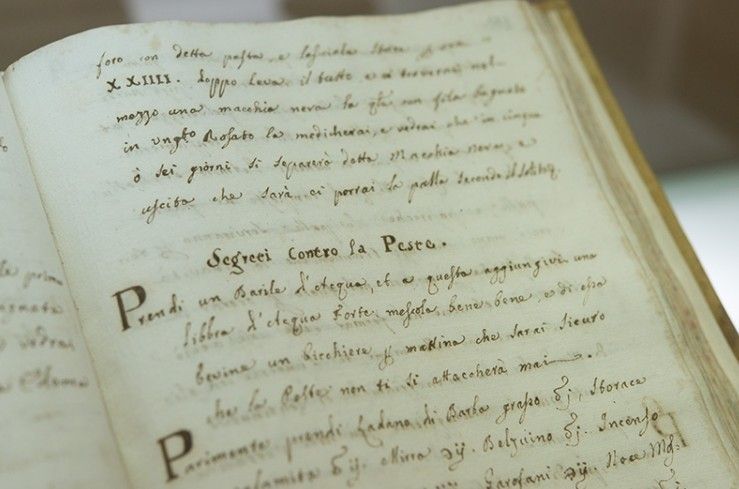 foro con detta pasta, e lasciala stare p ore
XXIIII. doppo leva il tutto e ci troverai nel
mezzo una macchia nera la qle con fila bagnate
in ungto Rosato la medicherai, e vedrai che in cinque
ò sei giorni si separerà detta Macchia nera, e
uscita che sarà ci porrai la palla secondo il solito.
Segreti Contro la Peste.
Prendi un Barile d'Acqua, et a questa aggiungivi una
libbra d'Acqua forte mescola bene bene, e di essa
bevine un bicchiere p mattina che sarai sicuro
che la Peste non ti si attaccherà mai
Parimente prendi Ladano di Barba grasso ℥j, Storace
Calamita ℥j. Mirra ʒij. Belzuino ℥j. Incenso
Garofani ʒij. Noce Mos.
prima
vedrai